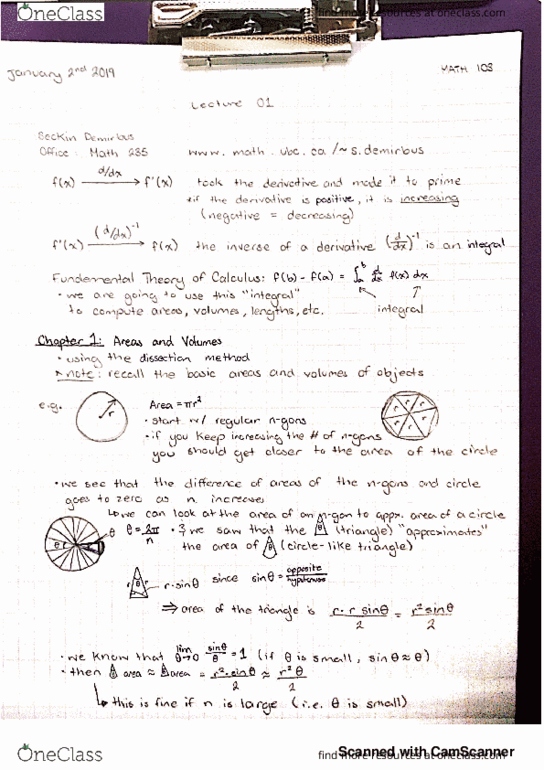 OneClass
find more resources at oneclass.com
January 2nd 2019
MATH 103
Lecture 01
Seckin Demirbas
Office: Math 235 www.math.ubc.ca/~s.demirbus
f(x) d/dx → f'(x) took the derivative and made it to prime
• if the derivative is positive, it is increasing
(negative = decreasing)
f'(x) (d/dx)⁻¹ → f(x) the inverse of a derivative (d/dx)⁻¹ is an integral
Fundamental Theory of Calculus: f(b) - f(a) = ∫ₐᵇ d/dx f(x) dx
• we are going to use this "integral"
to compute areas, volumes, lengths, etc. integral
Chapter 1: Areas and Volumes
• using the dissection method
* note: recall the basic areas and volumes of objects
e.g. r Area = πr²
• start w/ regular n-gons
• if you keep increasing the # of n-gons
you should get closer to the area of the circle
r r r r r r
• we see that the difference of areas of the n-gons and circle
goes to zero as n increases
↳ we can look at the area of an n-gon to appx. area of a circle
θ θ = 2π/n • we saw that the (triangle) "approximates"
the area of (circle-like triangle)
r·sinθ since sinθ = opposite/hypotenuse
⇒ area of the triangle is r·r sinθ/2 = r² sinθ/2
• we know that lim θ→0 sinθ/θ = 1 (if θ is small, sinθ ≈ θ)
• then area ≈ area = r²·sinθ/2 ≈ r²θ/2
↳ this is fine if n is large (i.e. θ is small)
OneClass
find more resources at oneclass.com
Scanned with CamScanner